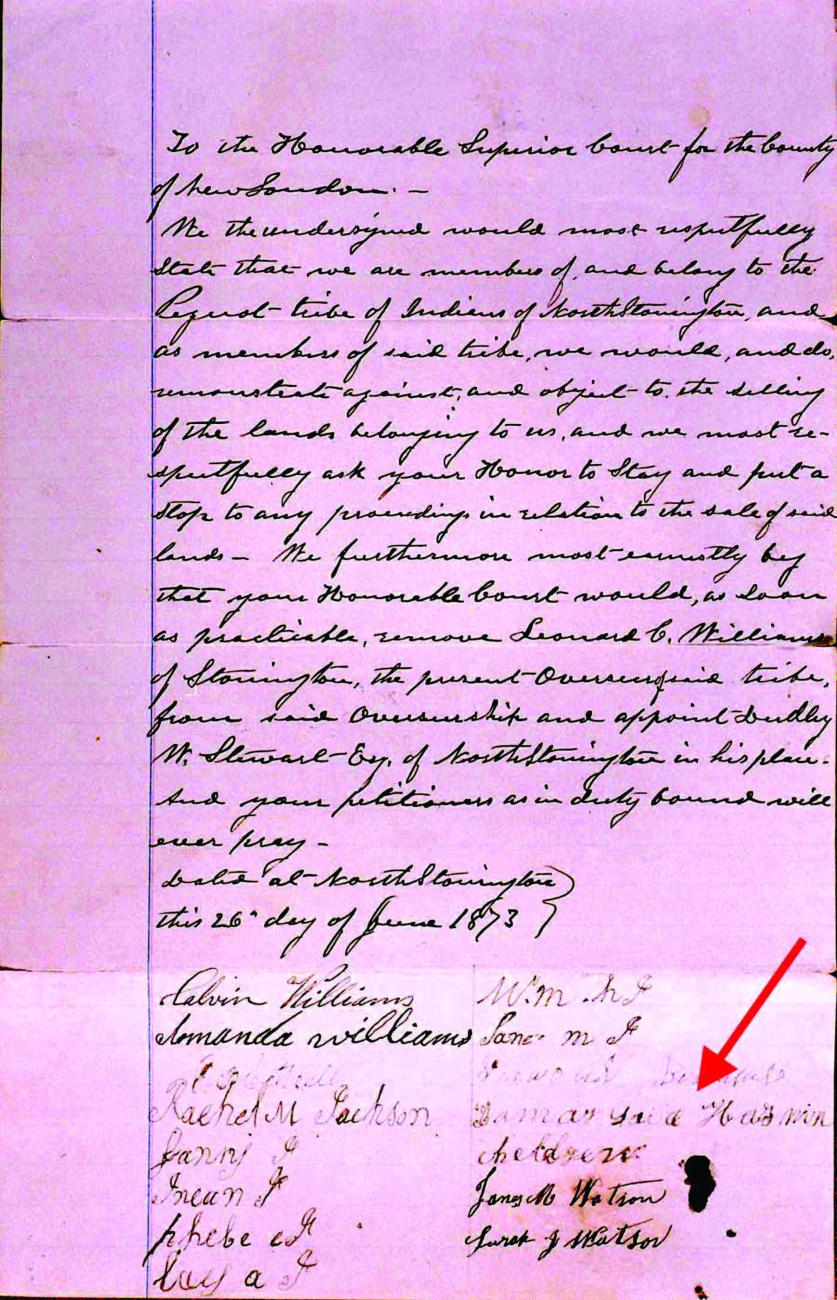 To the Honorable Superior Court for the County
of New London. —
We the undersigned would most respectfully
state that we are members of, and belong to the
Pequot tribe of Indians of North Stonington, and
as members of said tribe, we would, and do,
remonstrate against, and object to, the selling
of the lands belonging to us, and we most re-
spectfully ask your Honor to Stay and put a
stop to any proceedings in relation to the sale of said
lands — We furthermore most earnestly beg
that your Honorable Court would, as soon
as practicable, remove Leonard C. Williams
of Stonington, the present Overseer of said tribe,
from said Overseership and appoint Dudley
W. Stewart Esq. of North Stonington in his place.
And your petitioners as in duty bound will
ever pray —
Dated at North Stonington
this 26" day of June 1873
Calvin Williams
Amanda Williams
Rachel M Jackson
Fanny J
Phebe J
a J
Wm. J
m J
children
James M Watson
Sarah J Watson